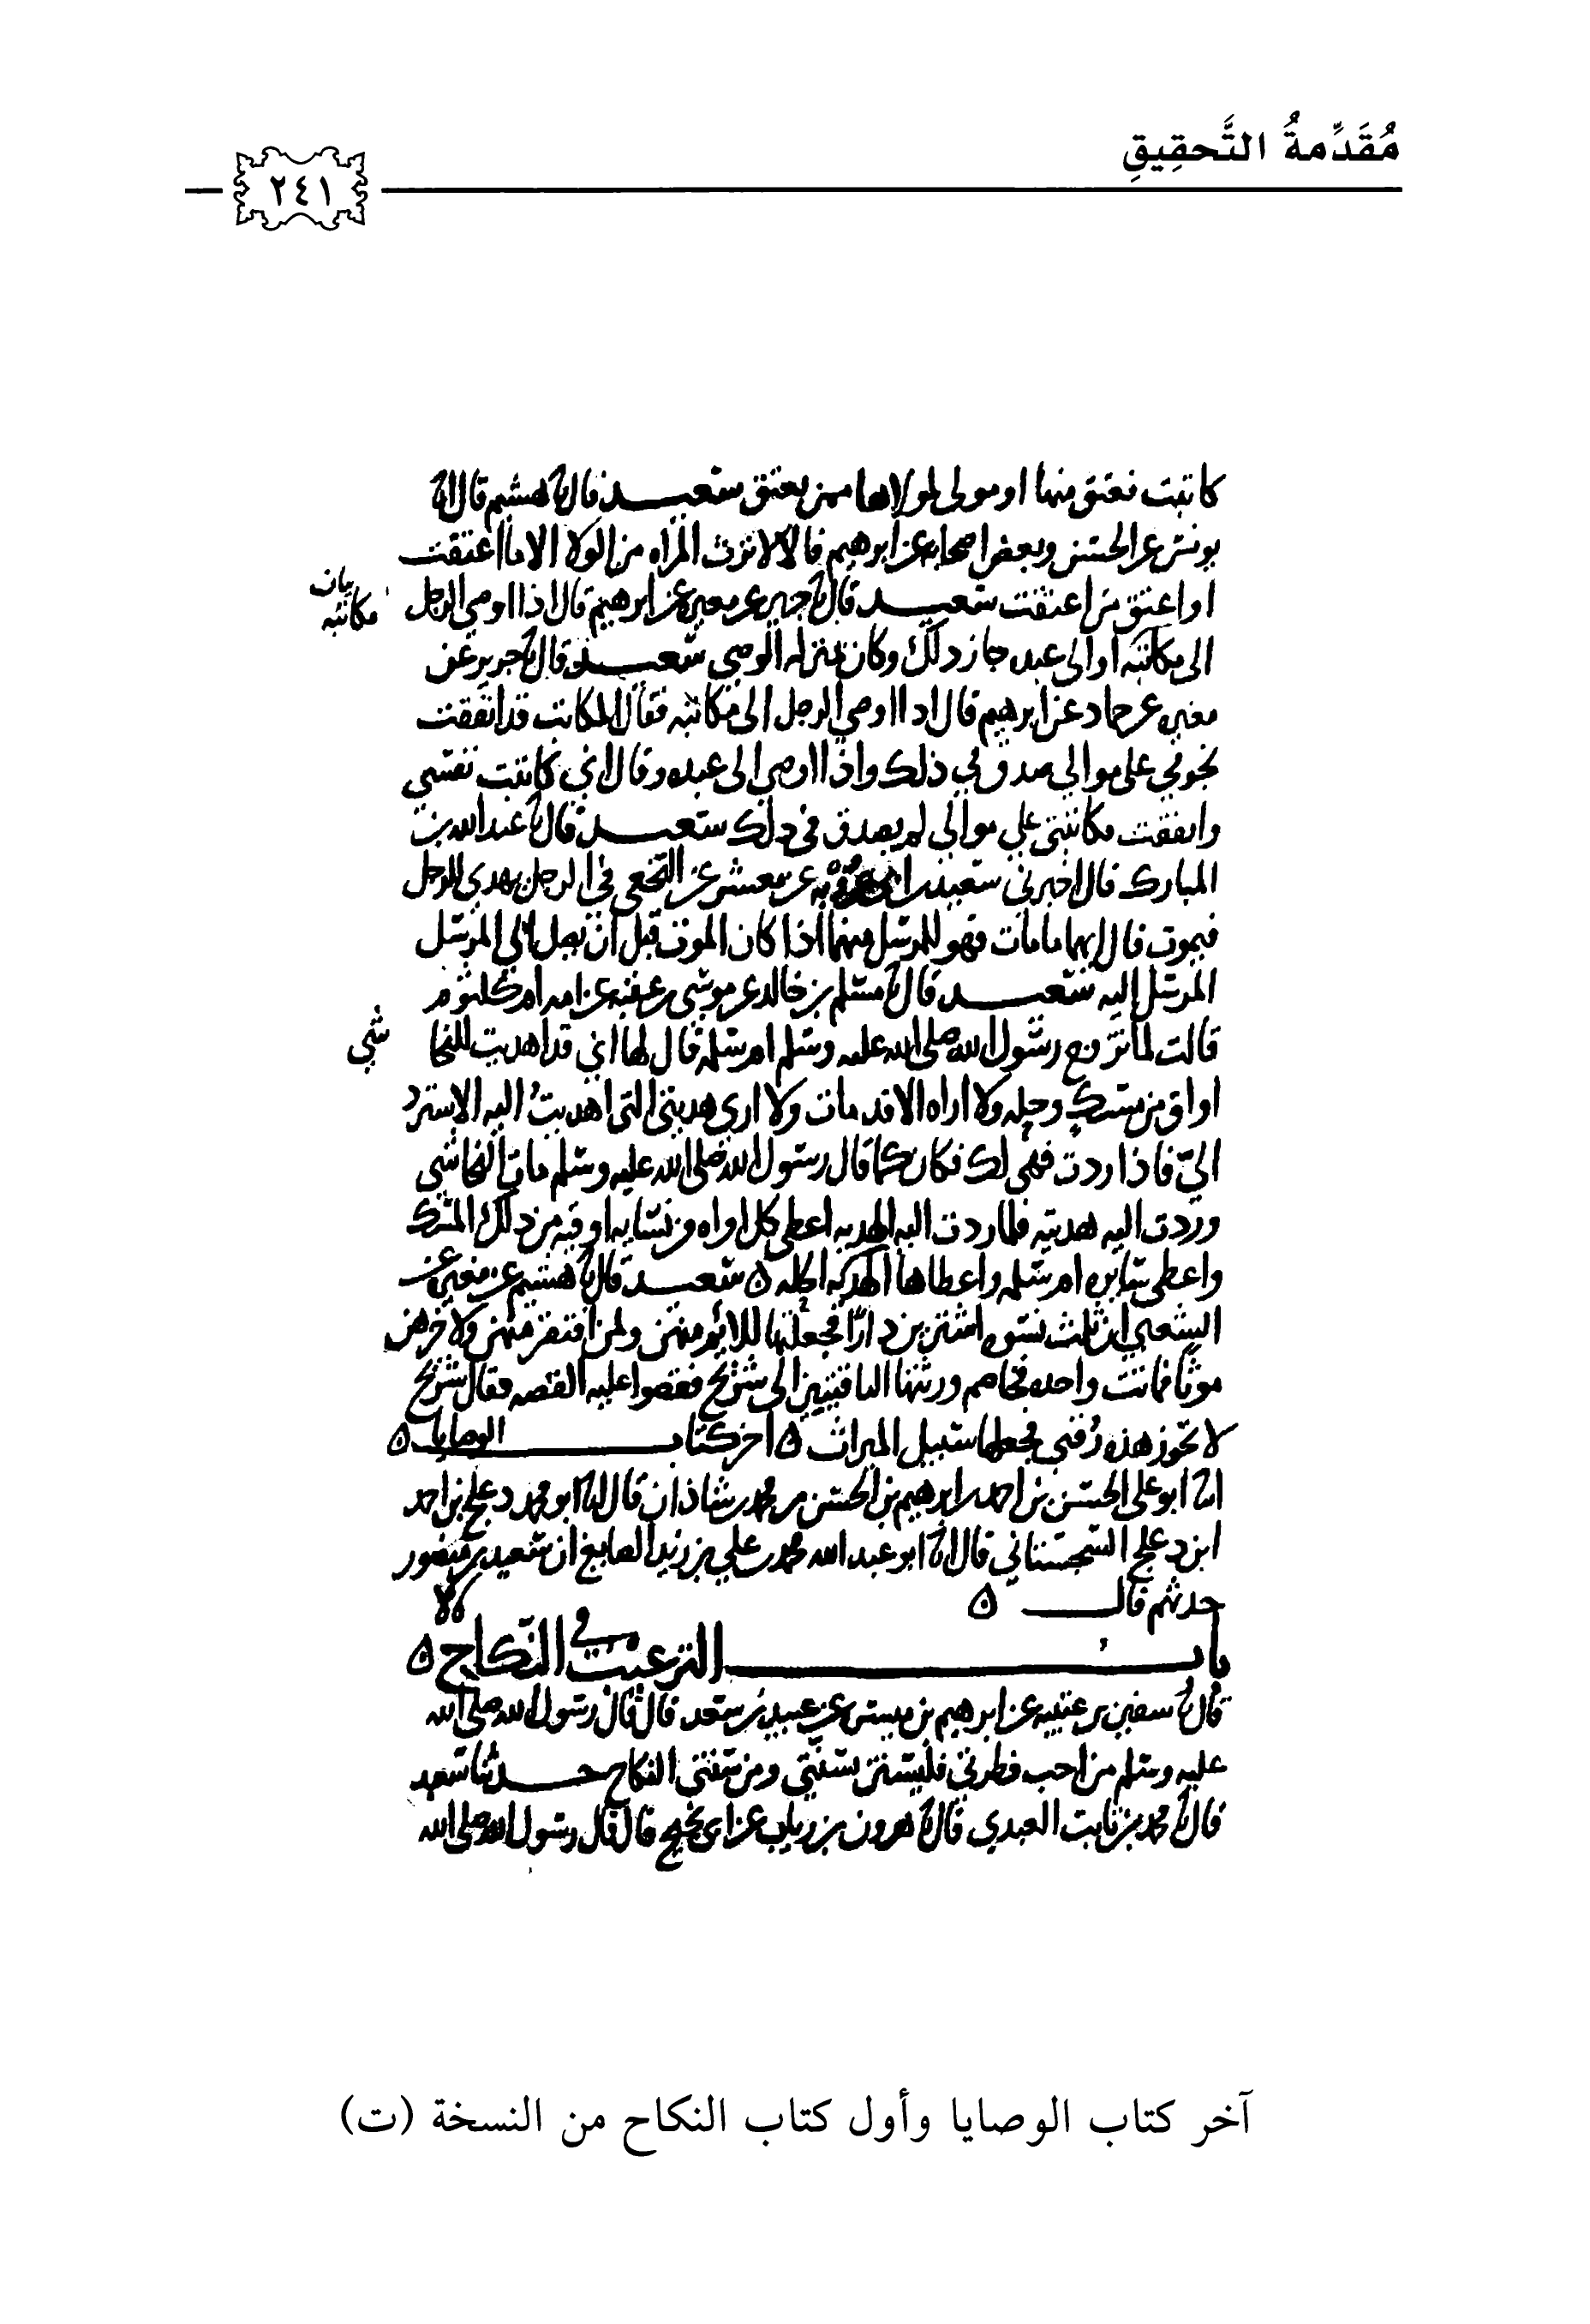 مُقَدِّمةُ التَّحقِيقِ
٢٤١
كاتبت فعتق منها او مولى لمولاها ممن يعتق سعيد قال نا هشيم قال انا
يونس عن الحسن وبعض اصحابه عن ابرهيم قالا لا ترث المراه من الولا الا ما اعتقت
او اعتق من اعتقت سعيد قال نا جرير عن مغيره عن ابرهيم قال اذا اوصى الرجل
مكاتبه
الى مكاتبه او الى عبده جاز ذلك وكان بمنزله الوصي سعيد قال نا جرير عن
مغيره عن حماد عن ابرهيم قال اذا اوصى الرجل الى مكاتبه فقال المكاتب قد انفقت
نجومي على موالي صدق في ذلك واذا اوصى الى عبده وقال اني كاتبت نفسي
وانفقت مكاتبتي على موالي لم يصدق في ذلك سعيد قال نا عبد الله بن
المبارك قال اخبرني سعيد بن ابي عروبه عن ابي معشر عن النخعي في الرجل يهدي للرجل
فيموت قال ايهما مامات فهو للمرسل منهما اذا كان الموت قبل ان يصل الى المرسل
المرسل اليه سعيد قال نا مسلم بن خالد عن موسى بن عقبه عن امه ام كلثوم
قالت لما تزوج رسول الله صلى الله عليه وسلم ام سلمه قال لها اني قد اهديت للنجا
شي
اواق من مسك وحله ولا اراه الا قد مات ولا ارى هديتي التي اهديت اليه الا سترد
اليّ فاذا ردت فهي لك فكان كما قال رسول الله صلى الله عليه وسلم مات النجاشي
وردت اليه هديته فلما ردت اليه الهديه اعطى كل امراه من نسايه اوقيه من ذلك المسك
واعطى سايره ام سلمه واعطاها الحله ٥ سعيد قال نا هشيم عن مغيره عن
الشعبي ان ثلث نسوه اشترين دارًا فجعلنها للايم منهن ولمن افتقر منهن ولاخرهن
موتًا فماتت واحده فخاصم ورثتها الباقيتين الى شريح فقصوا عليه القصه فقال شريح
لا تجوز هذه رُقبى فجعلها سبيل الميراث ٥ اخر كتاب الوصايا ٥
انا ابو علي الحسن بن احمد بن ابرهيم بن الحسن بن محمد بن شاذان قال انا ابو محمد دعلج بن احمد
ابن دعلج السجستاني قال انا ابو عبد الله محمد بن علي بن زيد الصايغ ان سعيد بن منصور
حدثهم قال ٥
باب الترغيب في النكاح ٥
قال نا سفين بن عيينه عن ابرهيم بن ميسره عن عبيد بن سعد قال قال رسول الله صلى الله
عليه وسلم من احب فطرتي فليستن بسنتي ومن سنتي النكاح حدثنا سعيد
قال نا محمد بن ثابت العبدي قال نا هرون بن رياب عن ابي نجيح قال قال رسول الله صلى الله
آخر كتاب الوصايا وأول كتاب النكاح من النسخة (ت)